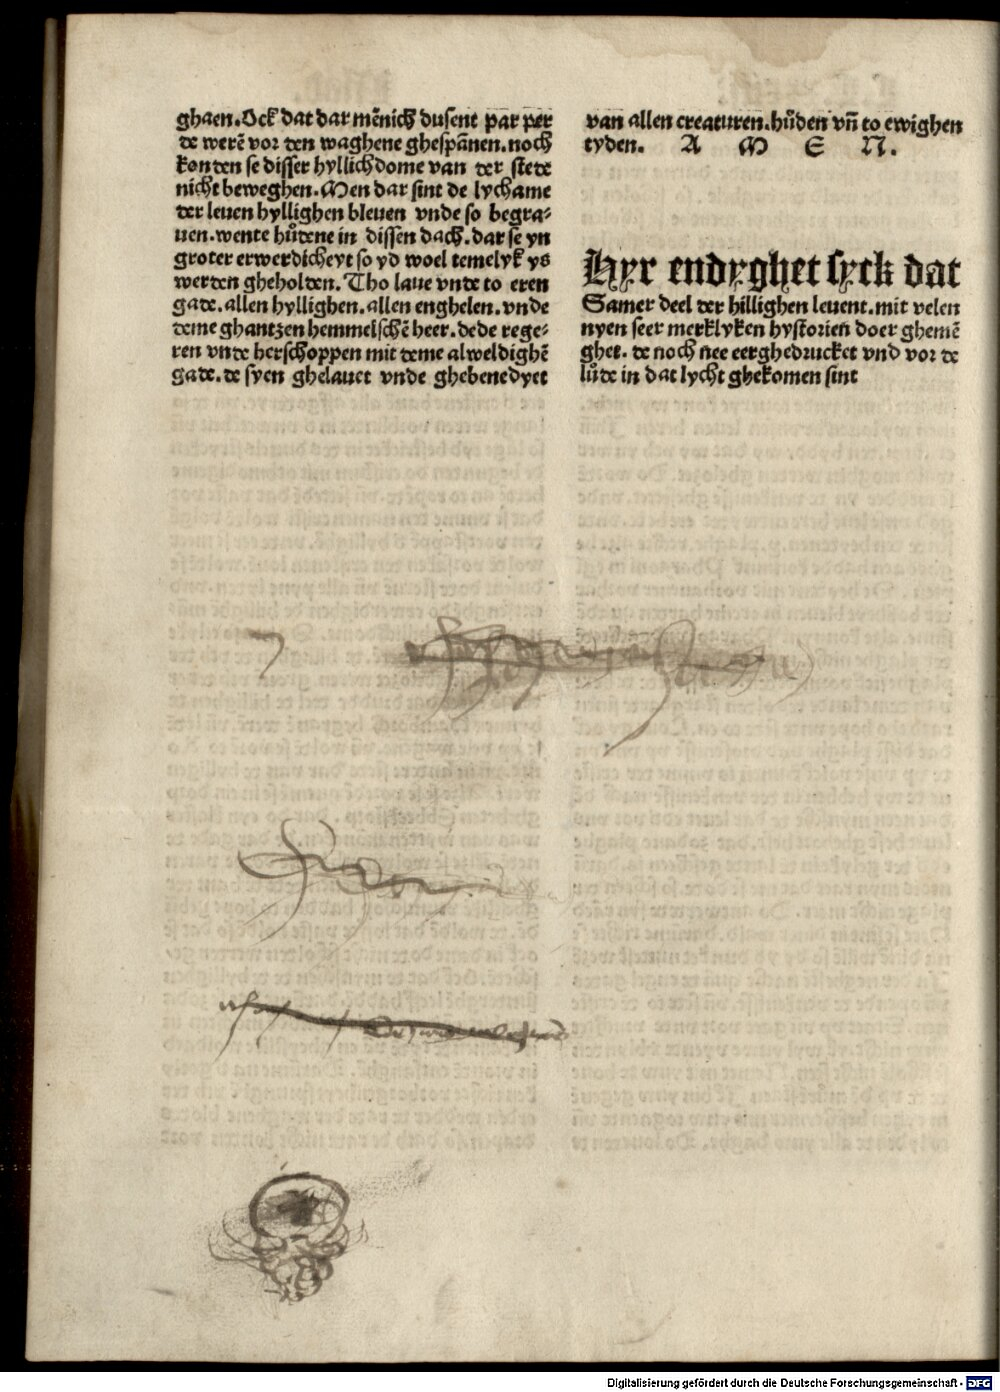 ghaen. Ock dat dar mēnich dusent par per
de werē vor den waghene ghespānen. noch
konden se disser hyllichdome van der stede
nicht beweghen. Men dar sint de lychame
der leuen hyllighen bleuen vnde so begra-
uen. wente hůdene in dissen dach. dar se yn
groter erwerdicheyt so yd woel temelyk ys
werden gheholden. Tho laue vnde to eren
gade. allen hyllighen. allen enghelen. vnde
deme ghantzen hemmelschē heer. de de rege-
ren vnde herschoppen mit deme alweldighē
gade. de syen ghelauet vnde ghebenedyet
van allen creaturen. hůden vñ to ewighen
tyden. A M E N.
Hyr endyghet syck dat
Samer deel der hillighen leuent. mit velen
nyen seer merklyken hystorien doer ghemē
ghet. de noch nee eer ghedrucket vnd vor de
lůde in dat lycht ghekomen sint
Digitalisierung gefördert durch die Deutsche Forschungsgemeinschaft - DFG